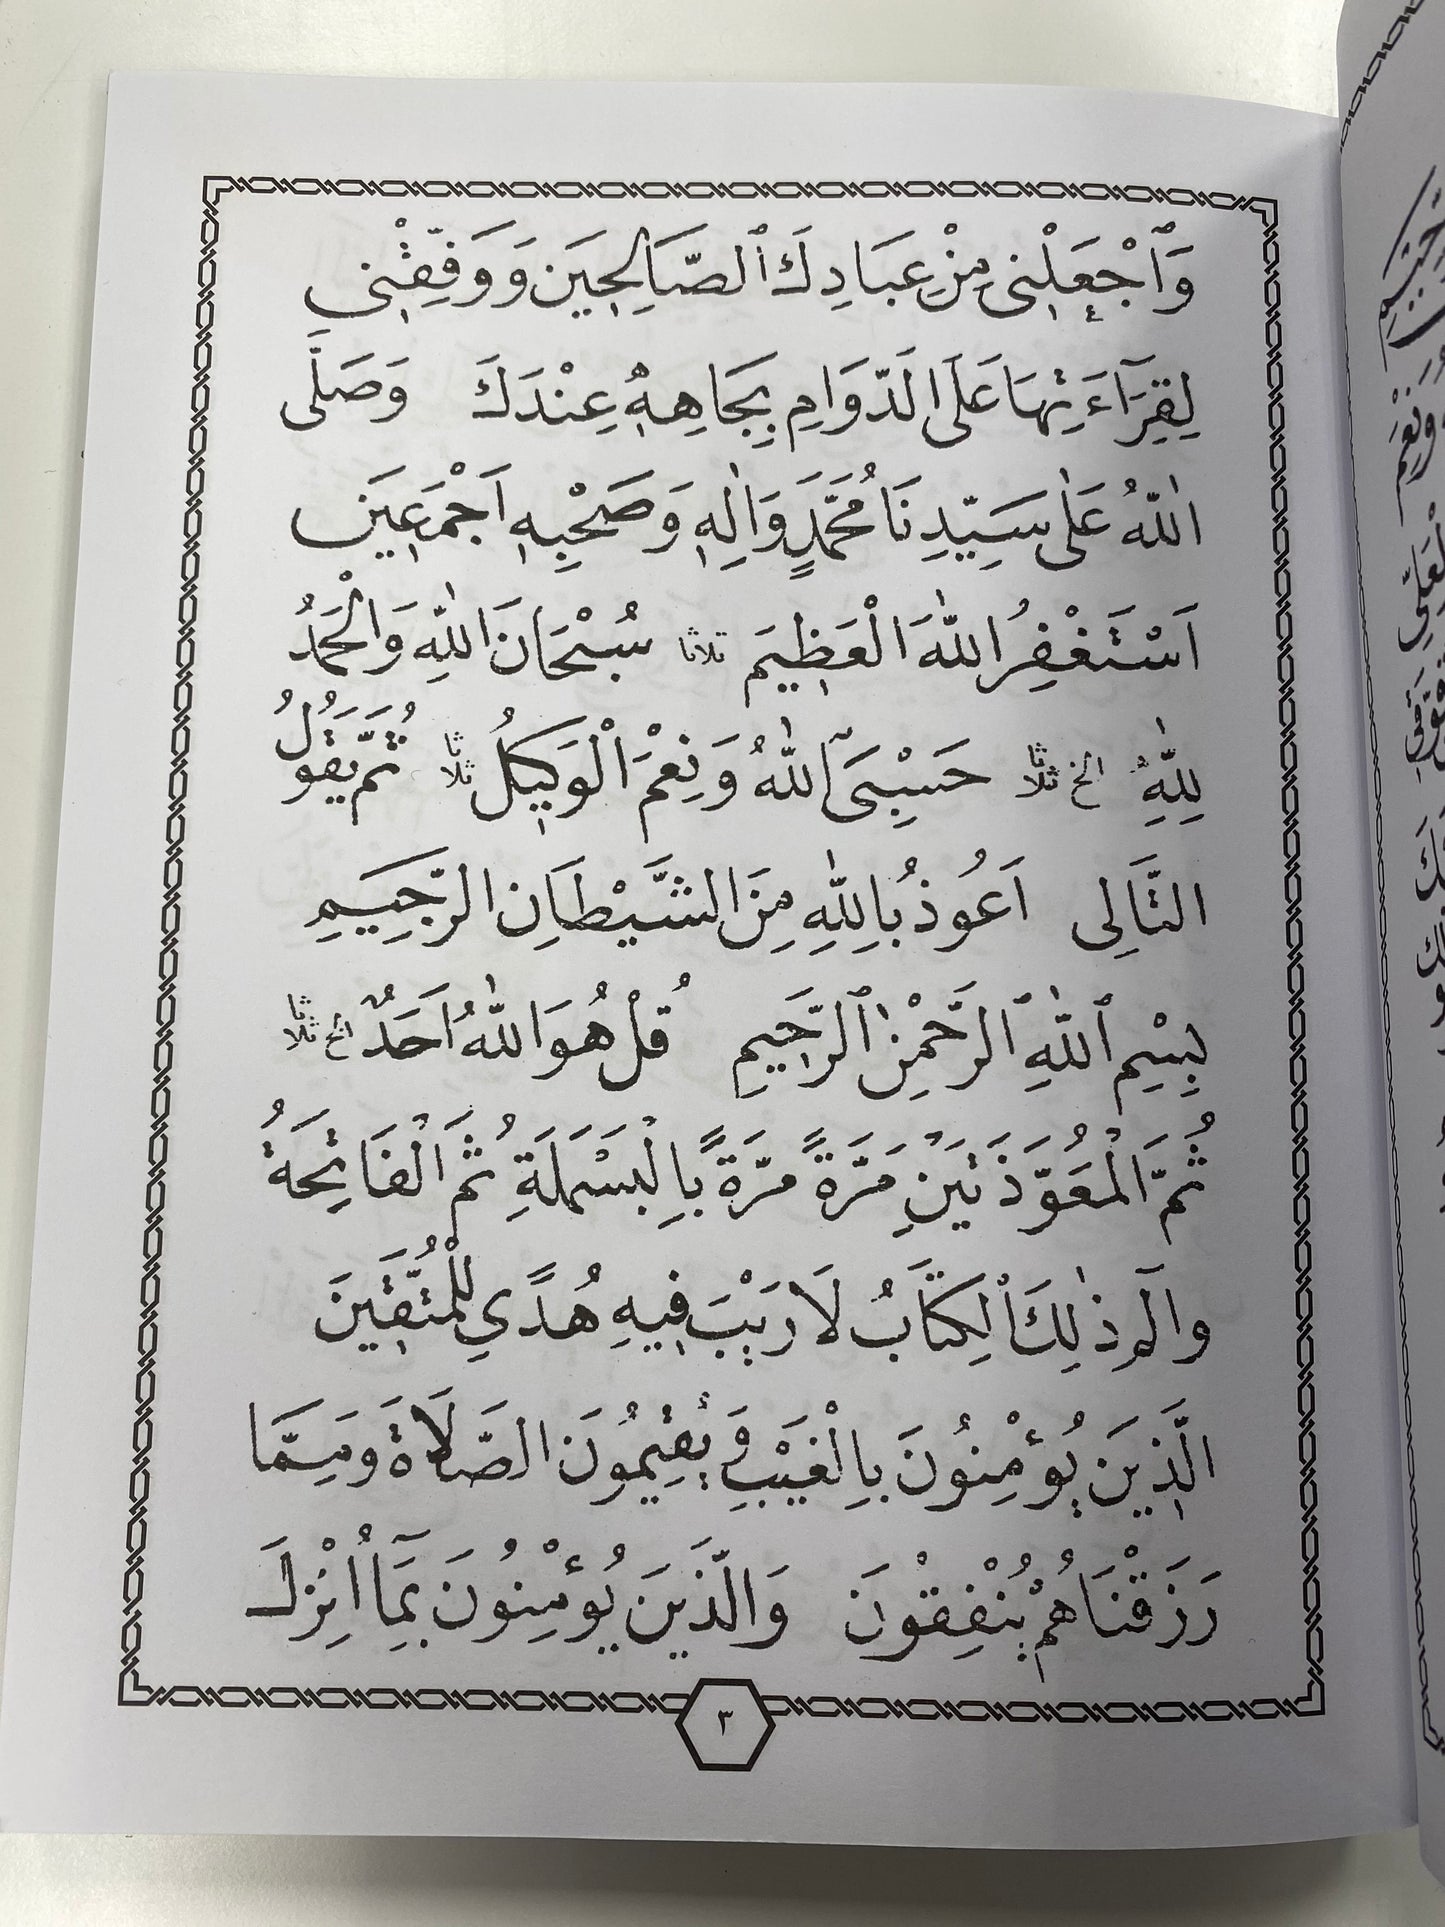 وَٱجْعَلْنِى مِنْ عِبَادِكَ ٱلصَّالِحِينَ وَوَفِّقْنِى
لِقِرَآءَتِهَا عَلَى الدَّوَامِ بِجَاهِهِ عِنْدَكَ وَصَلَّى
اللّٰهُ عَلَى سَيِّدِنَا مُحَمَّدٍ وَاٰلِهِ وَصَحْبِهِ اَجْمَعِينَ
اَسْتَغْفِرُ اللّٰهَ الْعَظِيمَ ثلاثا سُبْحَانَ اللّٰهِ وَالْحَمْدُ
لِلّٰهِ الخ ثلاثا حَسْبِىَ اللّٰهُ وَنِعْمَ الْوَكِيلُ ثلاثا ثُمَّ يَقُولُ
التَّالِى اَعُوذُ بِاللّٰهِ مِنَ الشَّيْطَانِ الرَّجِيمِ
بِسْمِ ٱللّٰهِ ٱلرَّحْمٰنِ ٱلرَّحِيمِ قُلْ هُوَ اللّٰهُ اَحَدٌ الخ ثلاثا
ثُمَّ الْمُعَوِّذَتَيْنِ مَرَّةً مَرَّةً بِالْبَسْمَلَةِ ثُمَّ الْفَاتِحَةُ
والٓمٓ ذٰلِكَ ٱلْكِتَابُ لَا رَيْبَ فِيهِ هُدًى لِلْمُتَّقِينَ
الَّذِينَ يُؤْمِنُونَ بِالْغَيْبِ وَيُقِيمُونَ الصَّلَاةَ وَمِمَّا
رَزَقْنَاهُمْ يُنْفِقُونَ وَالَّذِينَ يُؤْمِنُونَ بِمَآ اُنْزِلَ
٣